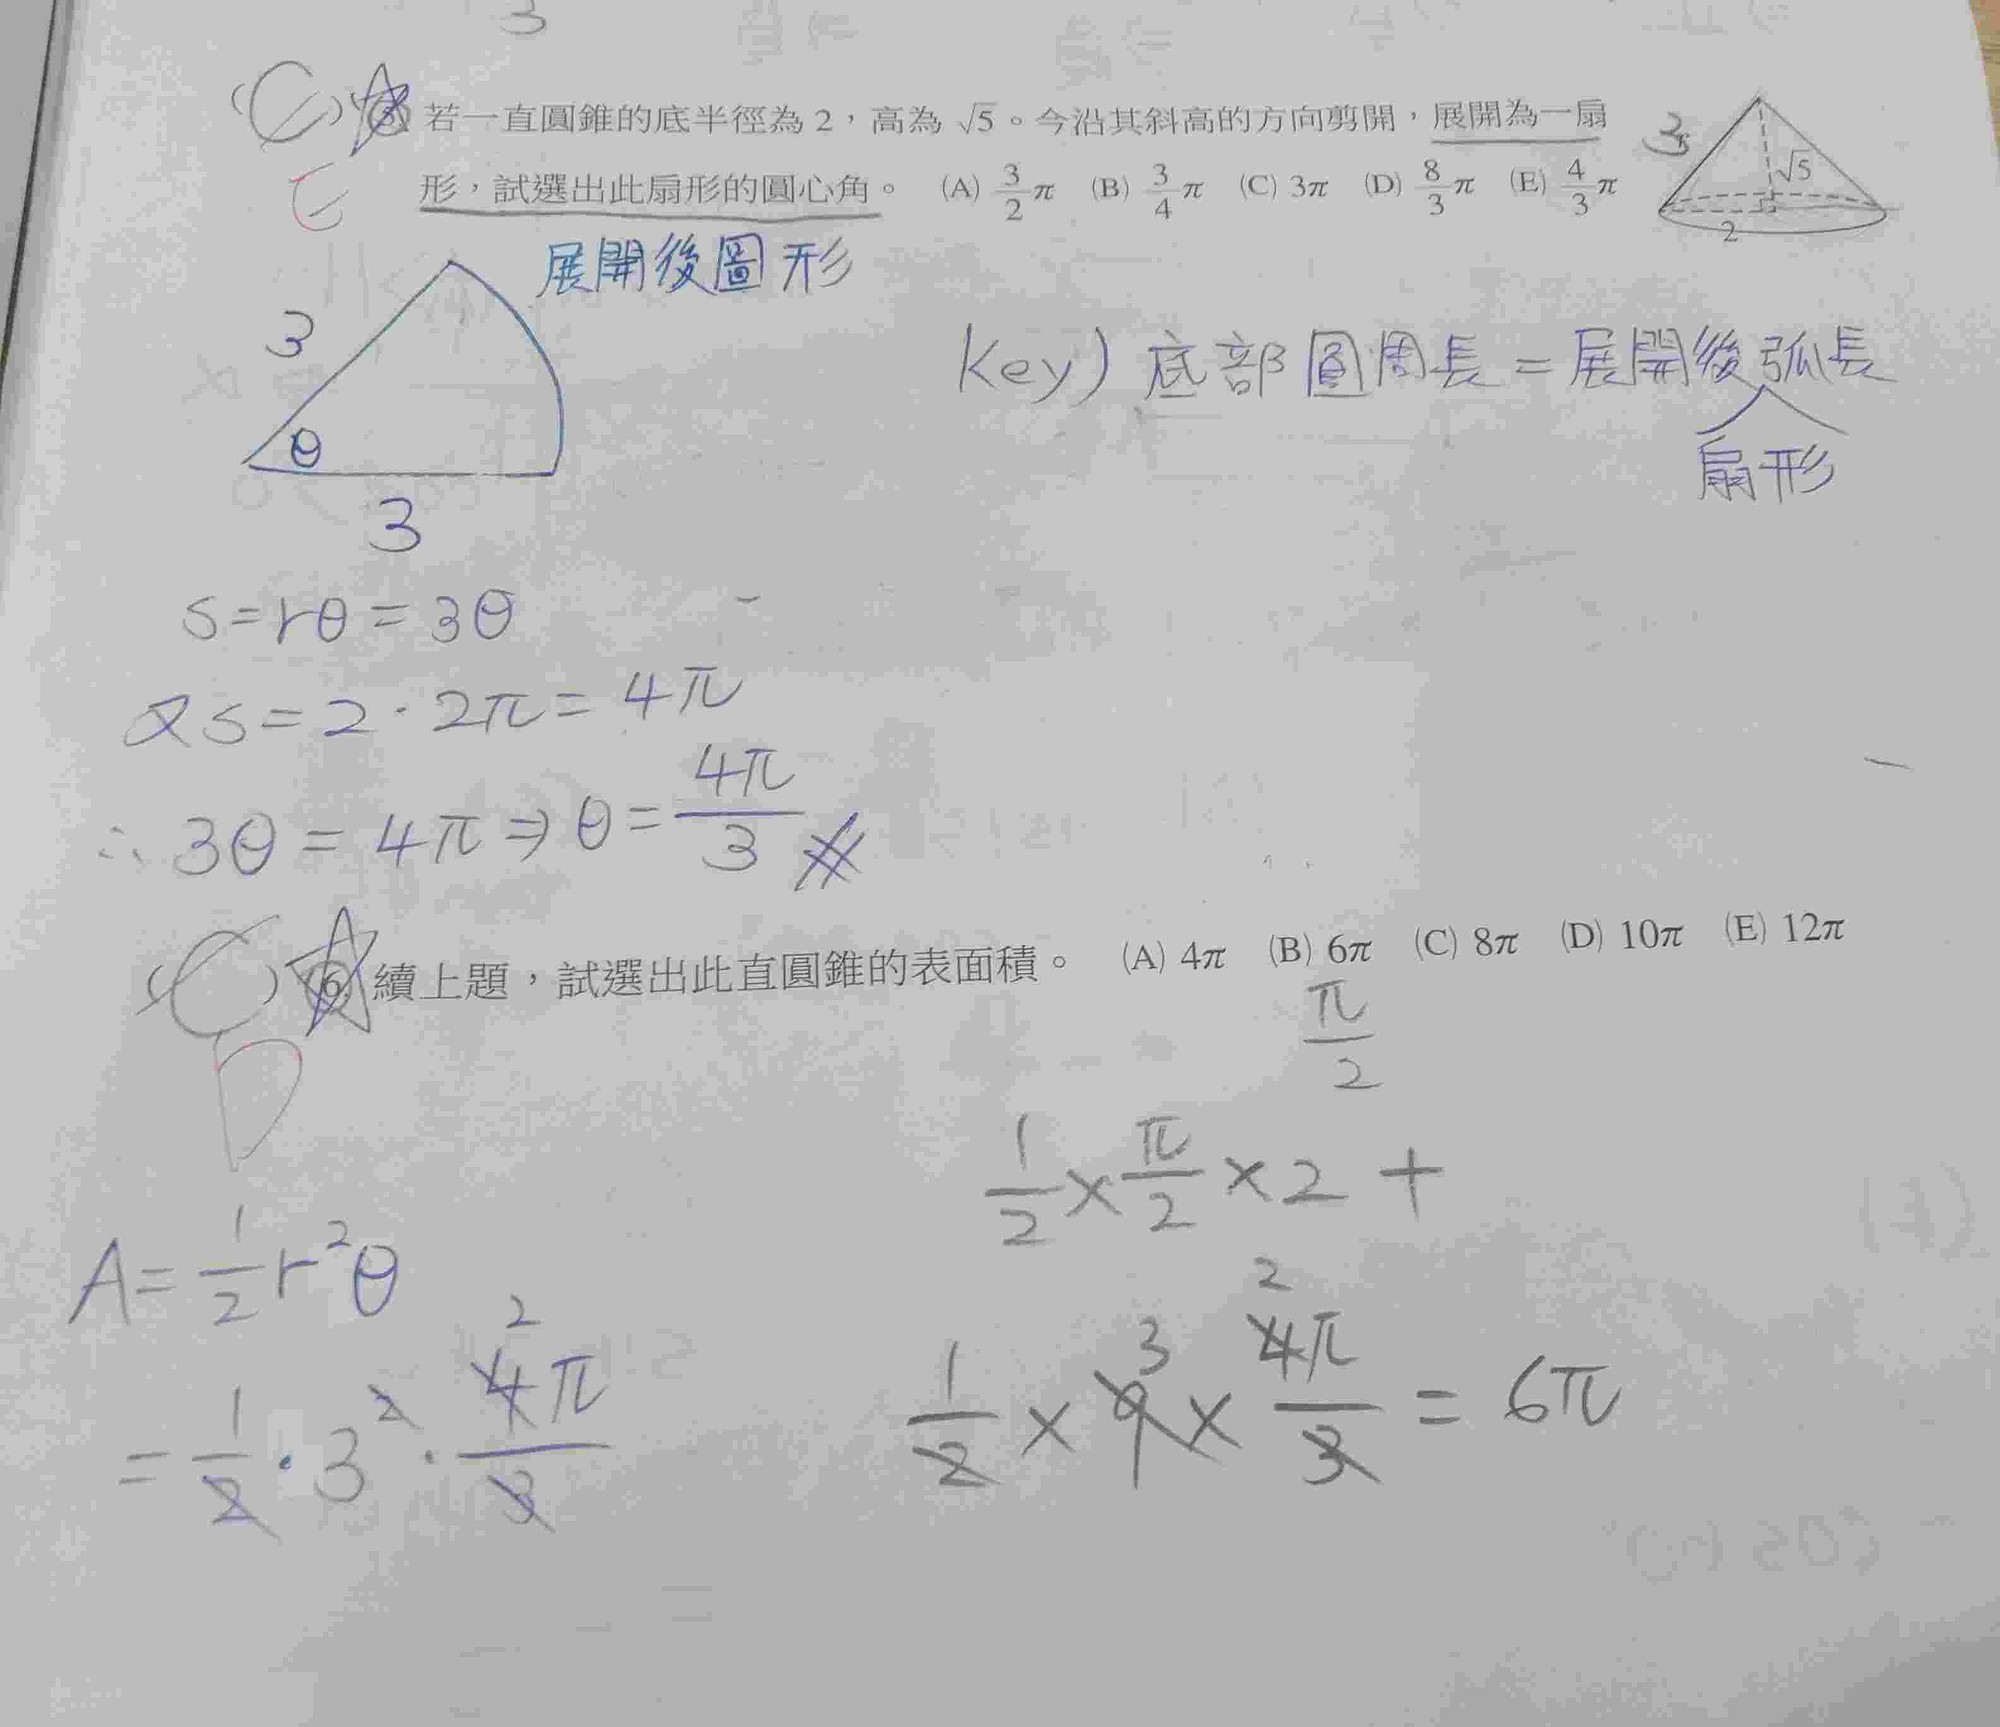 3
(C) 5. 若一直圓錐的底半徑為 2，高為 √5。今沿其斜高的方向剪開，展開為一扇
E 形，試選出此扇形的圓心角。 (A) 3/2 π (B) 3/4 π (C) 3π (D) 8/3 π (E) 4/3 π
3 √5
2
展開後圖形
3
θ
3
Key) 底部圓周長 = 展開後弧長
扇形
S = rθ = 3θ
又S = 2 · 2π = 4π
∴ 3θ = 4π ⇒ θ = 4π/3
(C) 6. 續上題，試選出此直圓錐的表面積。 (A) 4π (B) 6π (C) 8π (D) 10π (E) 12π
D
π/2
1/2 × π/2 × 2 +
A = 1/2 r²θ
= 1/2 · 3² · 4π/3
2
1/2 × 9 × 4π/3 = 6π
3 2